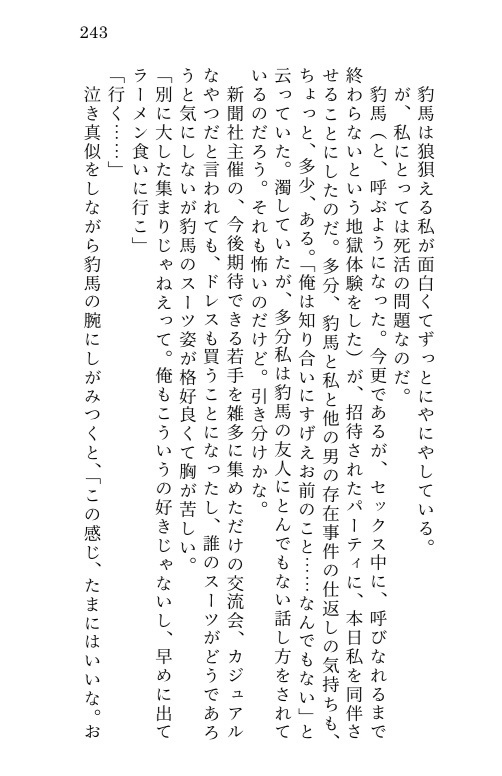 243
豹馬は狼狽える私が面白くてずっとにやにやしている。
が、私にとっては死活の問題なのだ。
豹馬（と、呼ぶようになった。今更であるが、セックス中に、呼びなれるまで
終わらないという地獄体験をした）が、招待されたパーティに、本日私を同伴さ
せることにしたのだ。多分、豹馬と私と他の男の存在事件の仕返しの気持ちも、
ちょっと、多少、ある。「俺は知り合いにすげえお前のこと……なんでもない」と
云っていた。濁していたが、多分私は豹馬の友人にとんでもない話し方をされて
いるのだろう。それも怖いのだけど。引き分けかな。
新聞社主催の、今後期待できる若手を雑多に集めただけの交流会、カジュアル
なやつだと言われても、ドレスも買うことになったし、誰のスーツがどうであろ
うと気にしないが豹馬のスーツ姿が格好良くて胸が苦しい。
「別に大した集まりじゃねえって。俺もこういうの好きじゃないし、早めに出て
ラーメン食いに行こ」
「行く……」
泣き真似をしながら豹馬の腕にしがみつくと、「この感じ、たまにはいいな。お